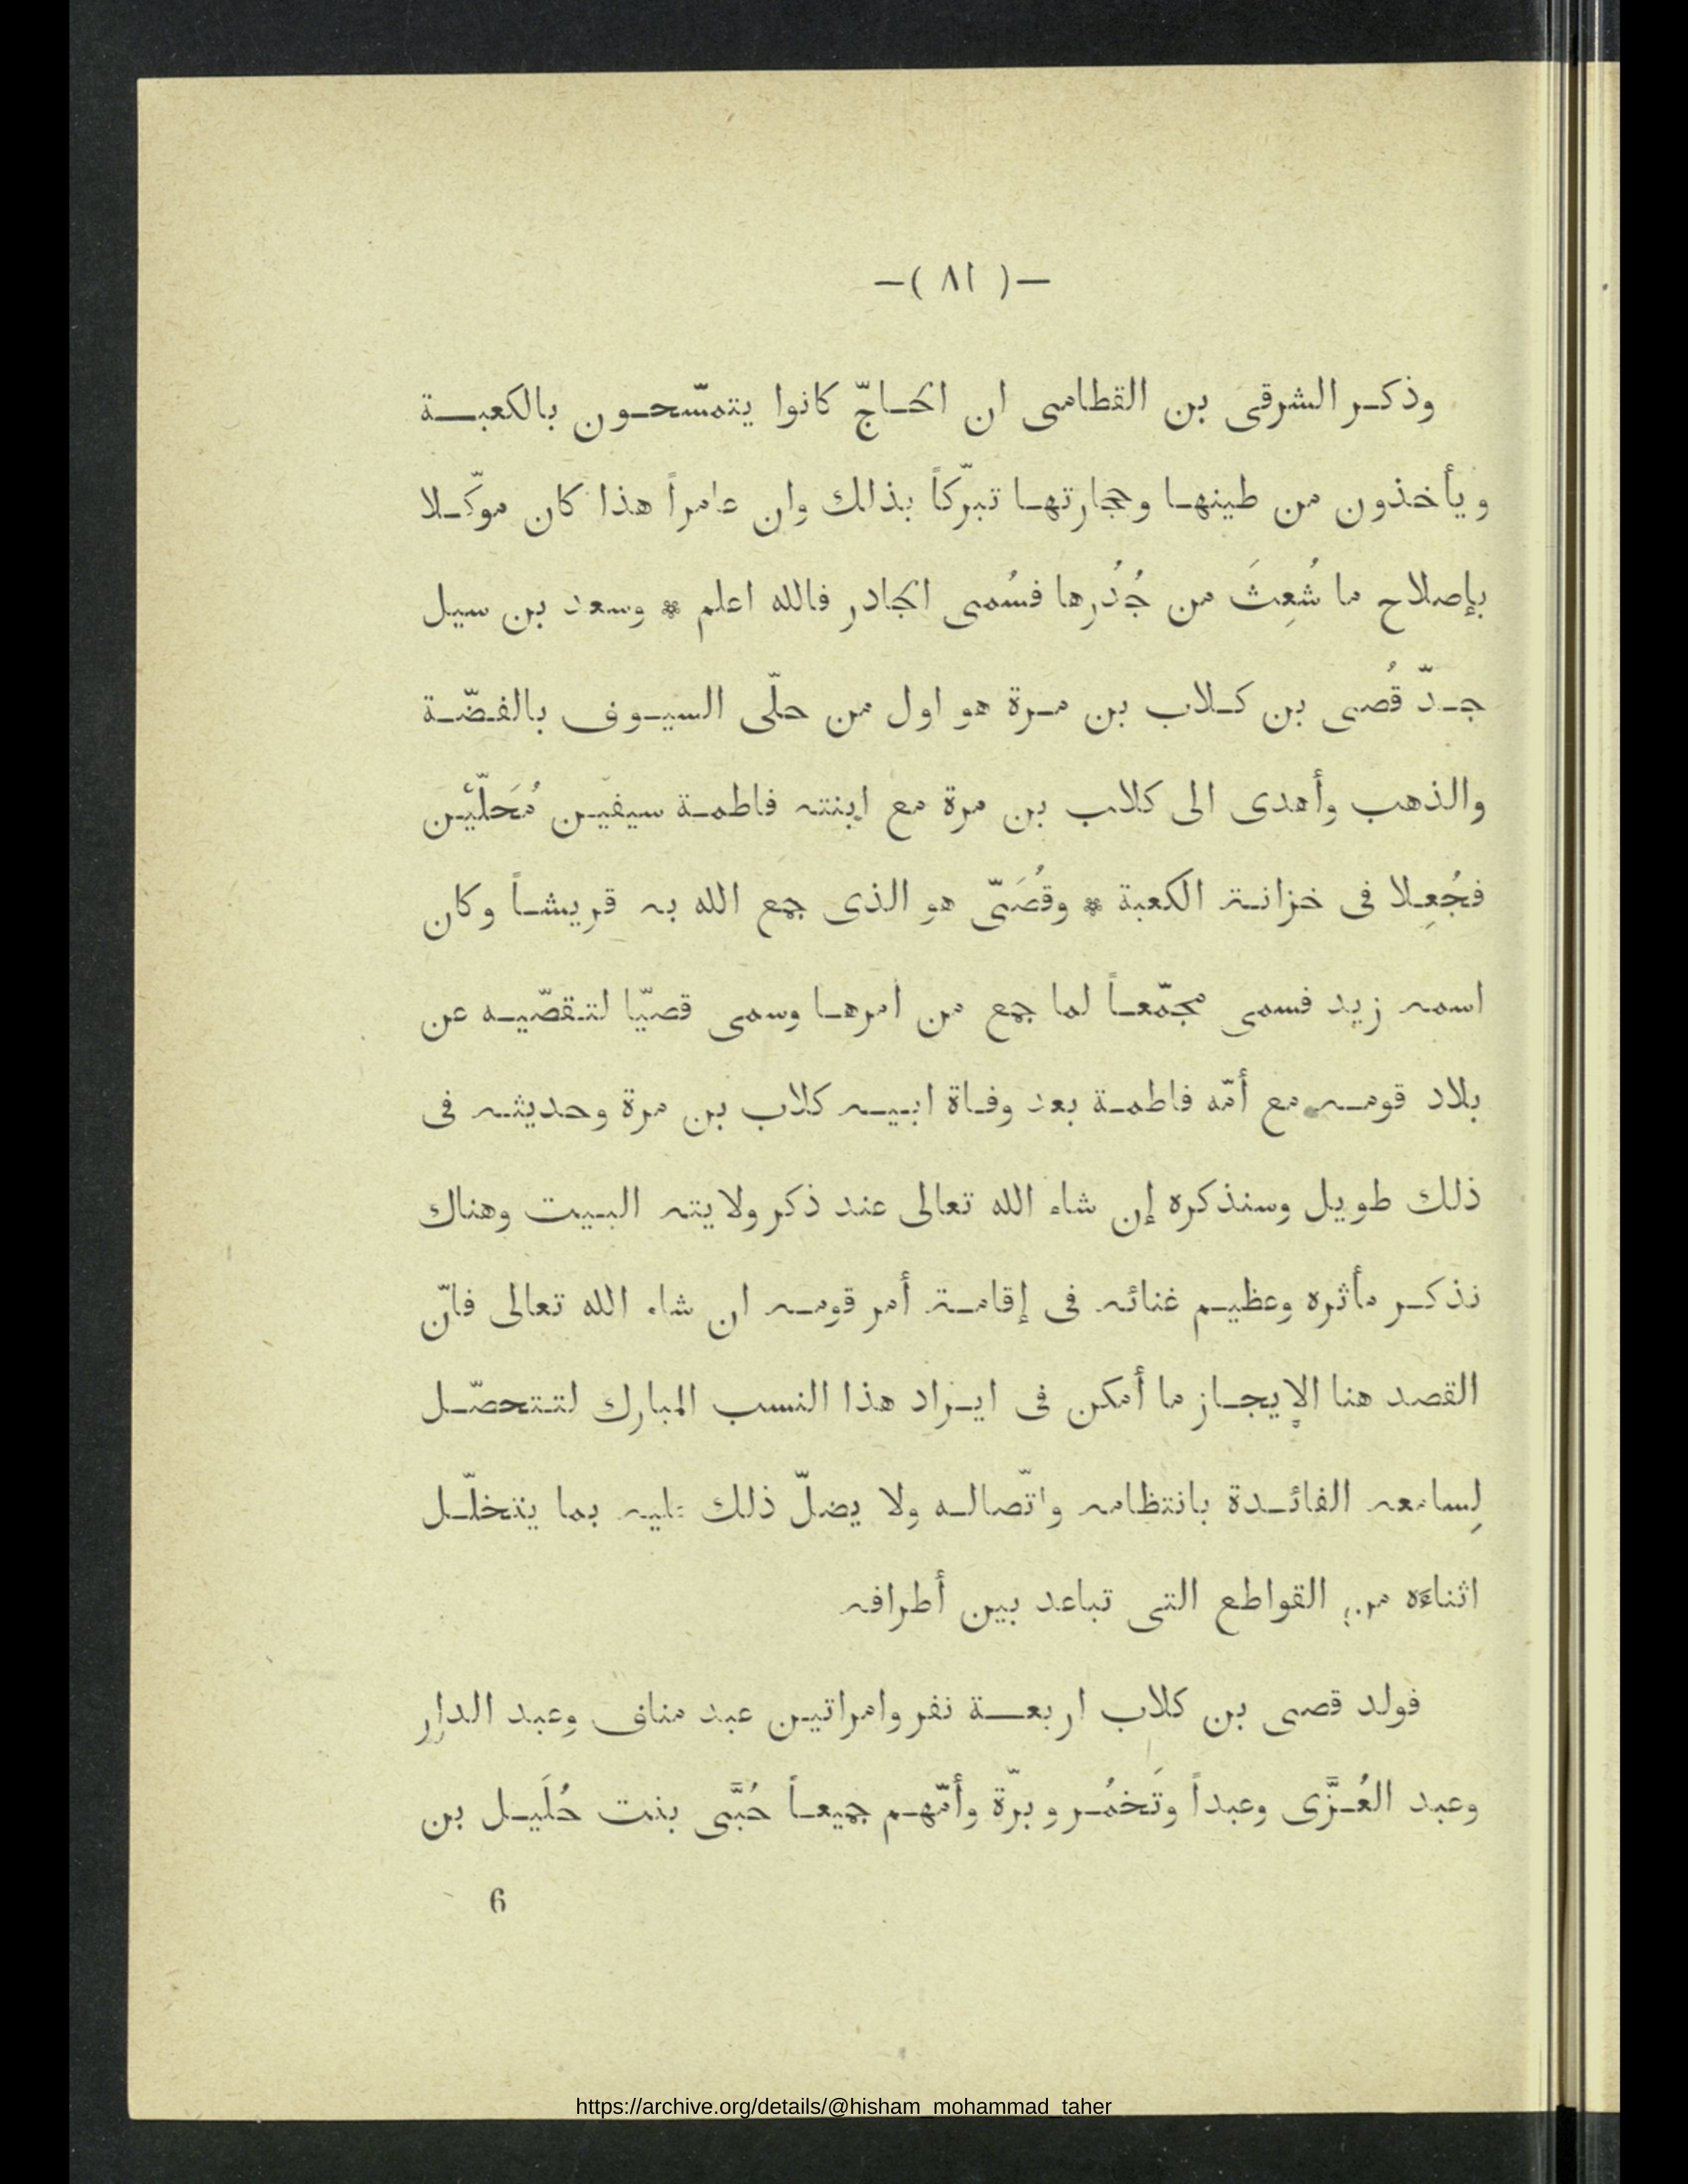 —( ٨١ )—
وذكر الشرقى بن القطامى ان الحاجّ كانوا يتمسّحون بالكعبة
ويأخذون من طينها وحجارتها تبرّكاً بذلك وان عامراً هذا كان موكّلا
بإصلاح ما شُعِثَ من جُدُرها فسُمى الجادر فالله اعلم * وسعد بن سيل
جدّ قُصى بن كلاب بن مرة هو اول من حلّى السيوف بالفضّة
والذهب وأهدى الى كلاب بن مرة مع ابنته فاطمة سيفين مُحَلّيْن
فجُعِلا فى خزانة الكعبة * وقُصَىّ هو الذى جمع الله به قريشاً وكان
اسمه زيد فسمى مجمّعاً لما جمع من امرها وسمى قصيّا لتقصّيه عن
بلاد قومه مع أمّه فاطمة بعد وفاة ابيه كلاب بن مرة وحديثه فى
ذلك طويل وسنذكره إن شاء الله تعالى عند ذكر ولايته البيت وهناك
نذكر مأثره وعظيم غنائه فى إقامة أمر قومه ان شاء الله تعالى فانّ
القصد هنا الإيجاز ما أمكن فى ايراد هذا النسب المبارك لتتحصّل
لِسامعه الفائدة بانتظامه واتّصاله ولا يضلّ ذلك عليه بما يتخلّل
اثناءَه من القواطع التى تباعد بين أطرافه
فولد قصى بن كلاب اربعة نفر وامراتين عبد مناف وعبد الدار
وعبد العُزَّى وعبداً وتَخمُر وبرّة وأمّهم جميعاً حُبَّى بنت حُلَيل بن
6
https://archive.org/details/@hisham_mohammad_taher